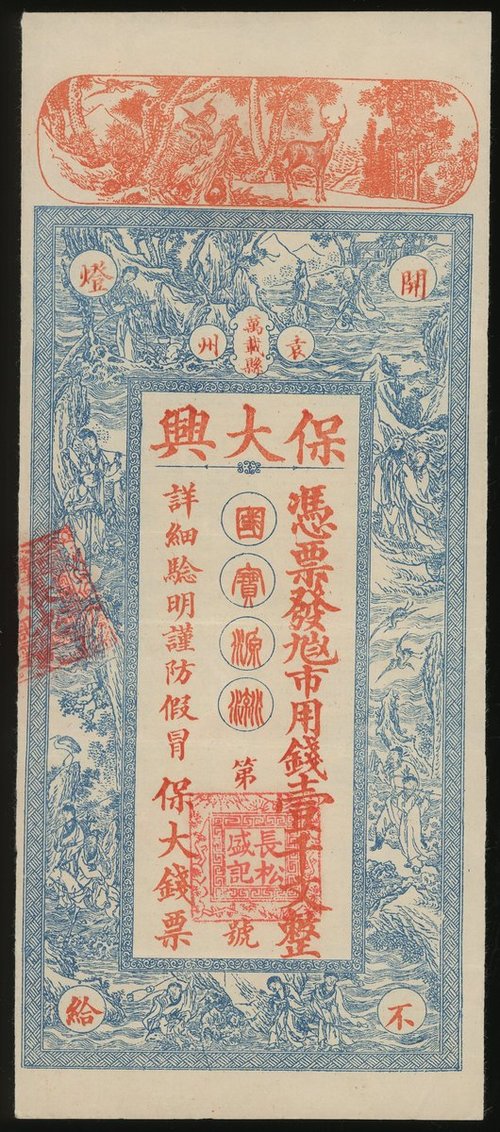 開燈
袁州
萬載縣
保大興
憑票發兌市用錢壹千文整
國寶源流
第 號
長松盛記
詳細驗明謹防假冒 保大錢票
不給